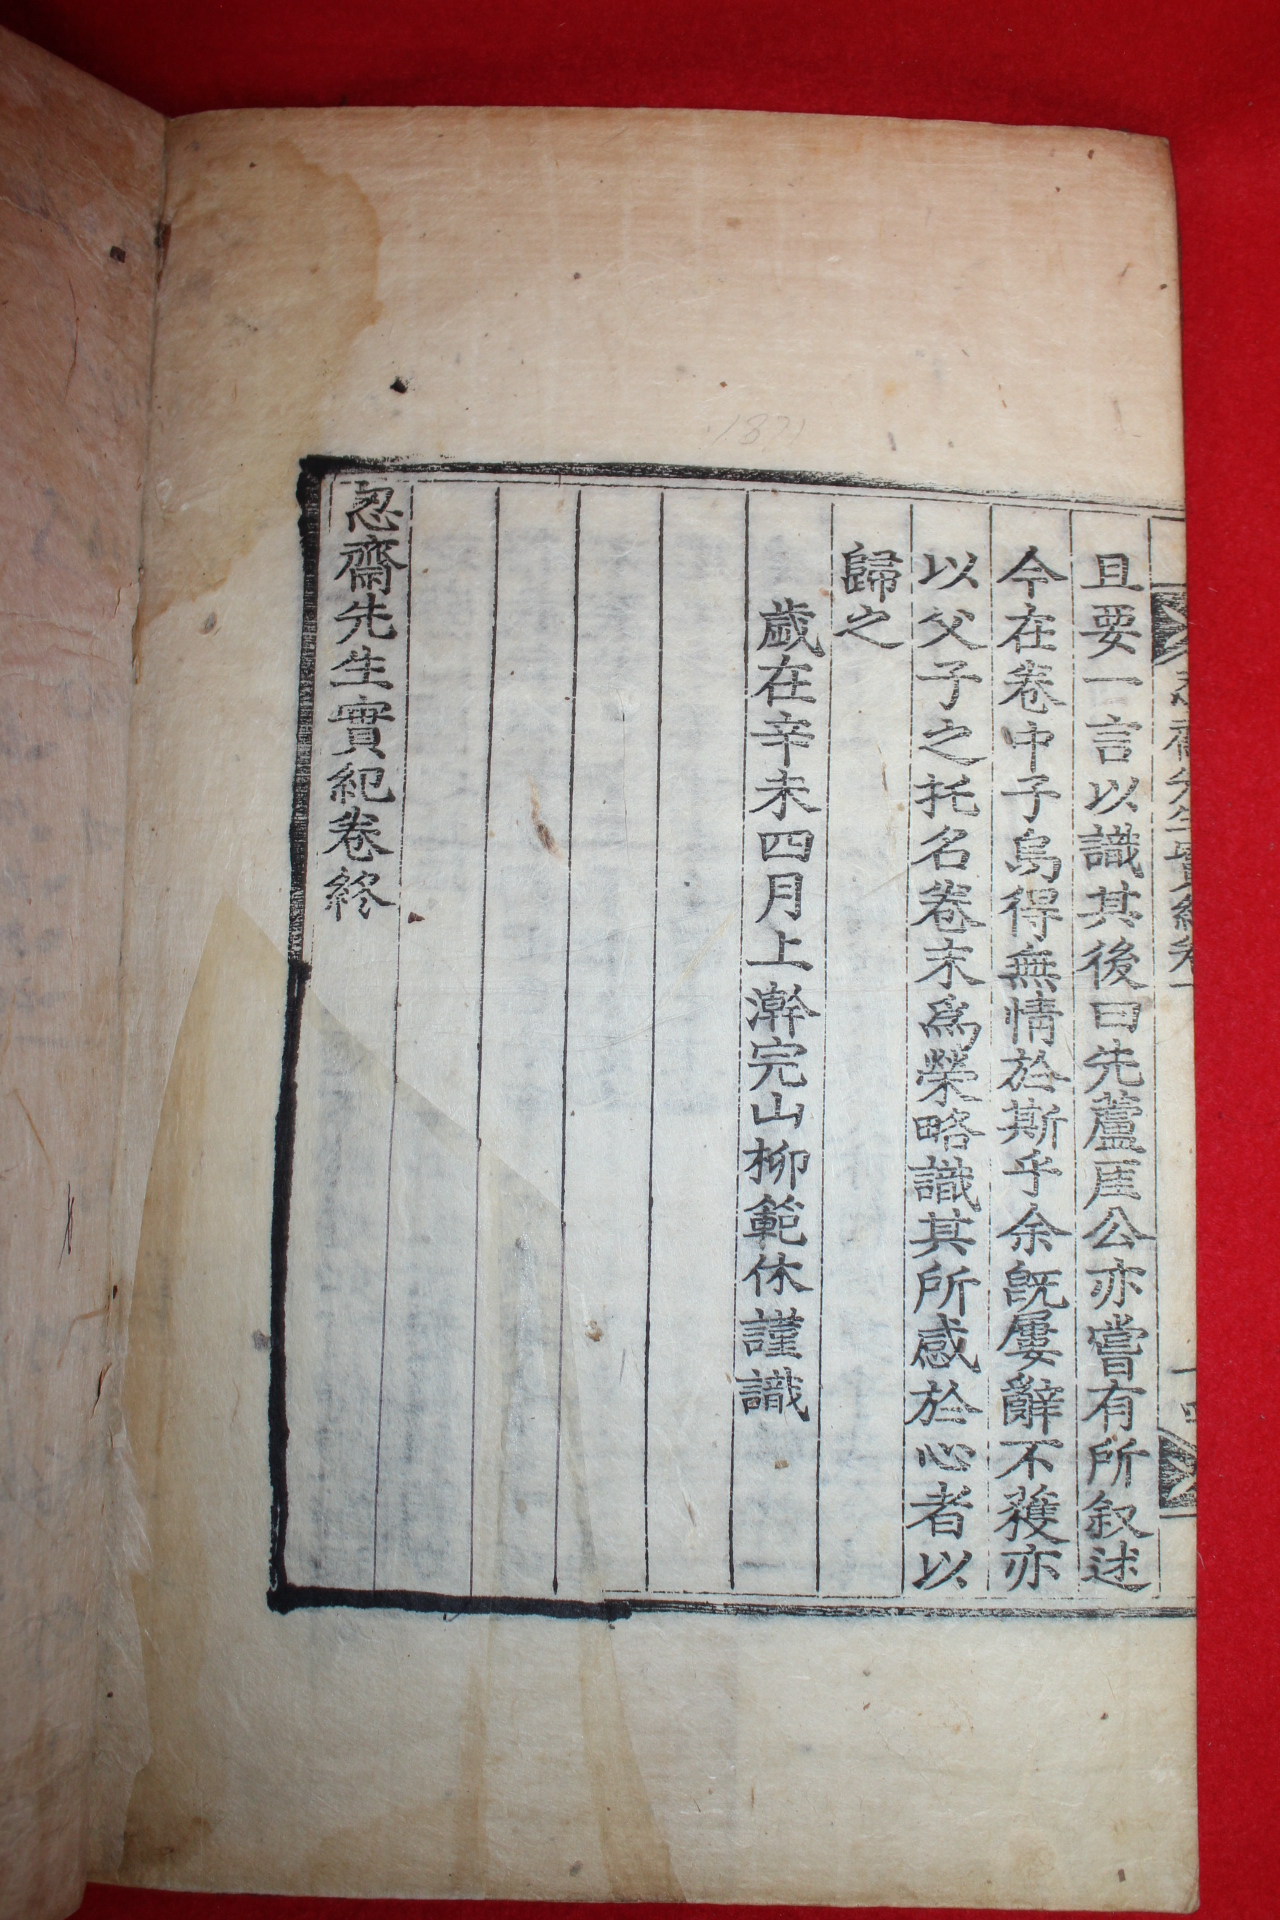 且要一言以識其後曰先蘆厓公亦嘗有所叙述
今在卷中子烏得無情於斯乎余旣屢辭不獲亦
以父子之托名卷末爲榮略識其所感於心者以
歸之
歲在辛未四月上澣完山柳範休謹識
忍齋先生實紀卷終
1871